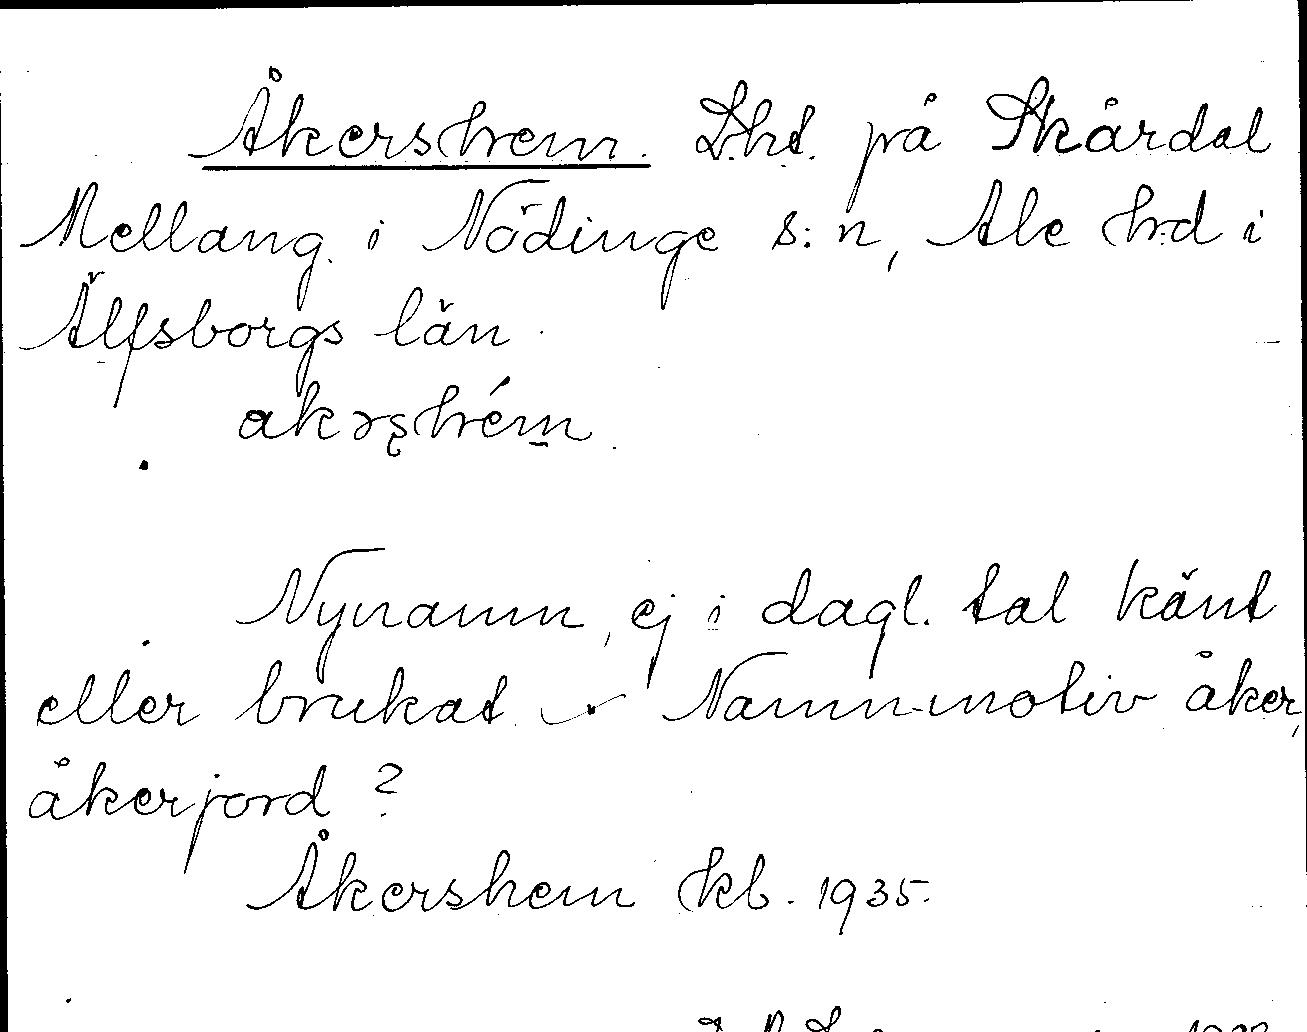 Åkershem. Lht. på Skårdal
Mellang. i Nödinge s:n, Ale hrd i
Älfsborgs län.
akərshém.
Nynamn, ej i dagl. tal känt
eller brukat. Namnmotiv åker,
åkerjord?
Åkershem kb. 1935.